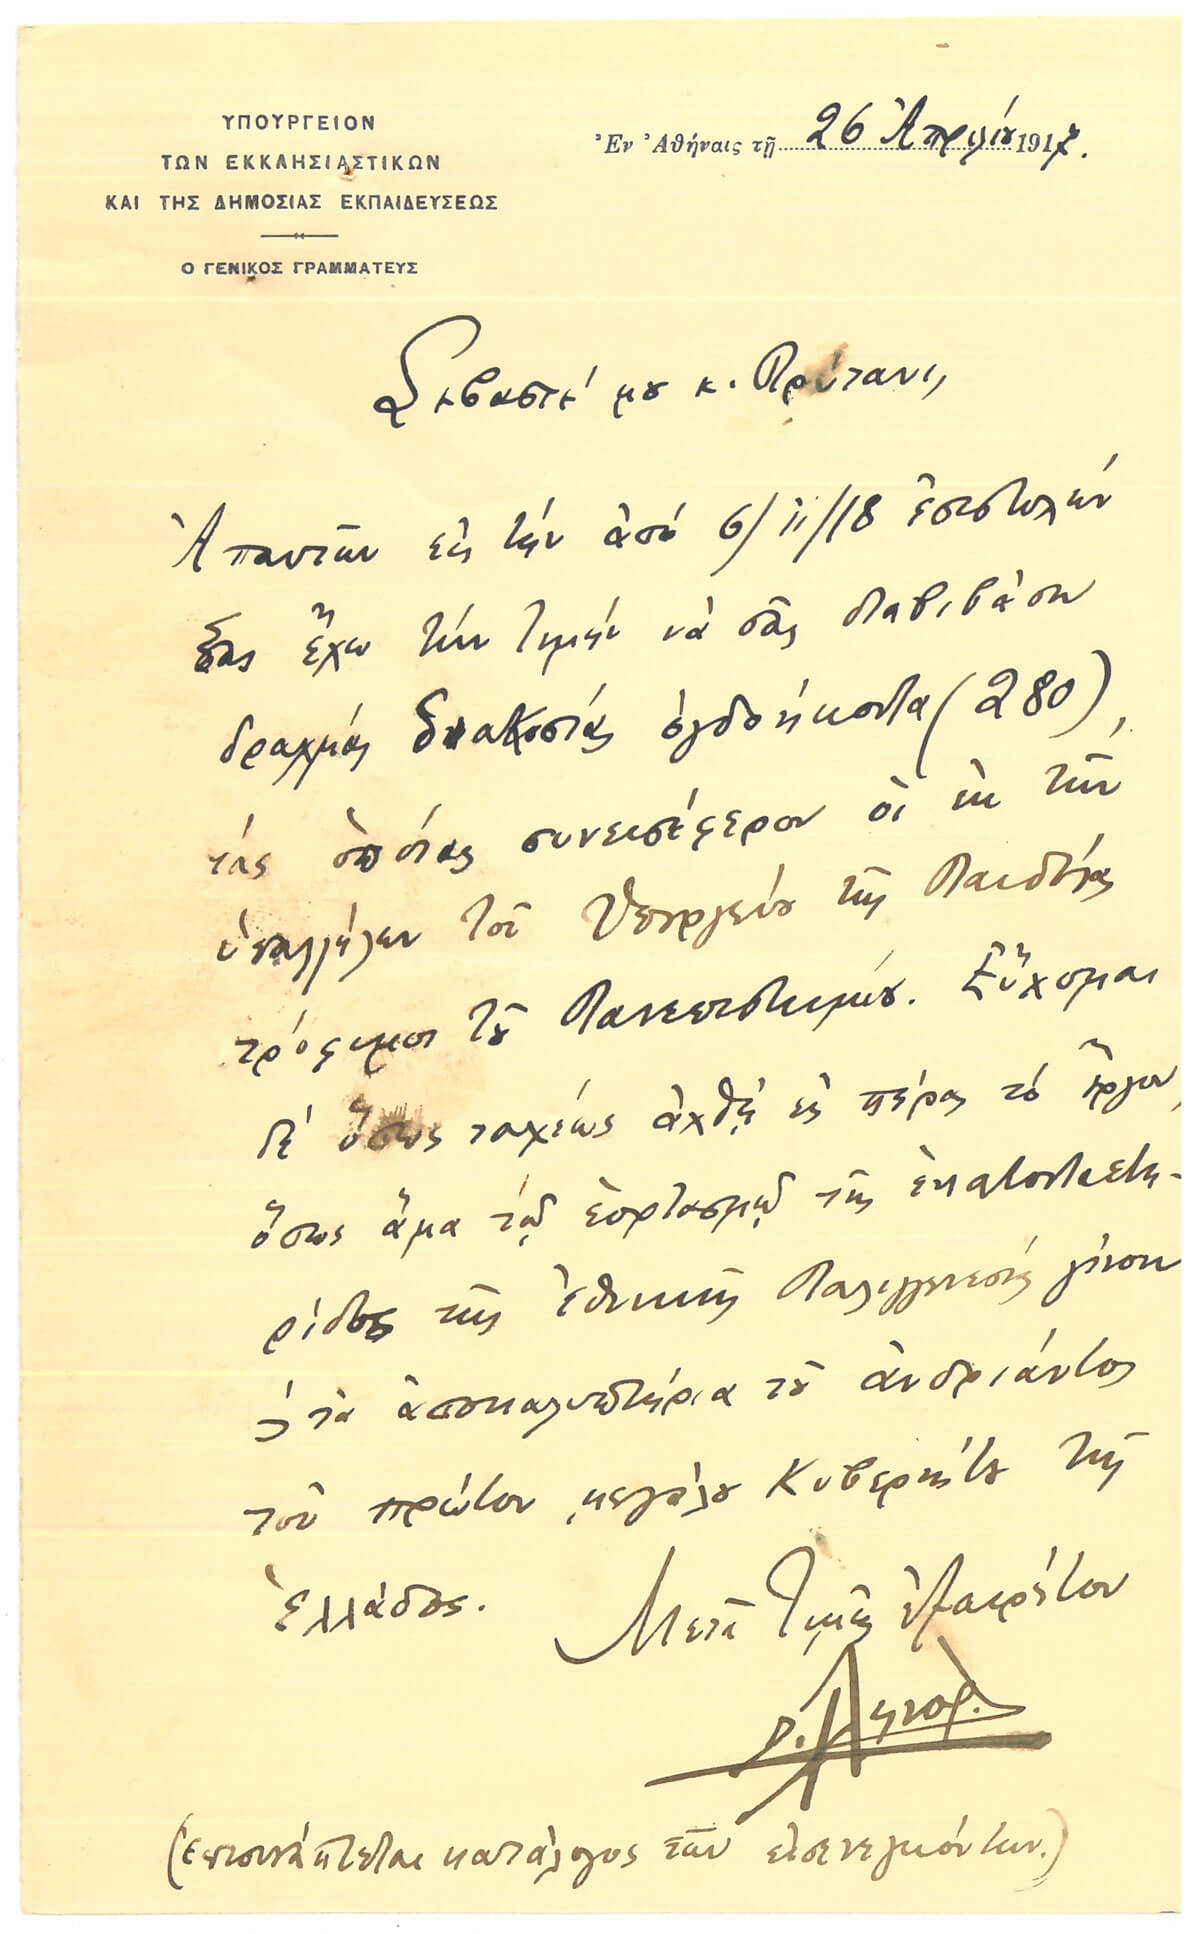 ΥΠΟΥΡΓΕΙΟΝ
ΤΩΝ ΕΚΚΛΗΣΙΑΣΤΙΚΩΝ
ΚΑΙ ΤΗΣ ΔΗΜΟΣΙΑΣ ΕΚΠΑΙΔΕΥΣΕΩΣ
Ο ΓΕΝΙΚΟΣ ΓΡΑΜΜΑΤΕΥΣ
Ἐν Ἀθήναις τῇ 26 Ἀπριλίου 191
Σεβαστέ μου κ. Πρύτανι,
Ἀπαντῶν εἰς τὴν ἀπὸ 6/11/18 ἐπιστολήν
σας ἔχω τὴν τιμὴν νὰ σᾶς διαβιβάσω
δραχμὰς διακοσίας ὀγδοήκοντα (280),
τὰς ὁποίας συνεισέφερον οἱ ἐκ τῶν
ὑπαλλήλων τοῦ Ὑπουργείου τῆς Παιδείας
τρόφιμοι τοῦ Πανεπιστημίου. Εὔχομαι
δὲ ὅπως ταχέως ἀχθῇ εἰς πέρας τὸ ἔργον,
ὅπως ἅμα τῷ ἑορτασμῷ τῆς ἑκατονταετη-
ρίδος τῆς ἐθνικῆς Παλιγγενεσίας γίνουν
τὰ ἀποκαλυπτήρια τοῦ ἀνδριάντος
τοῦ πρώτου μεγάλου Κυβερνήτου τῆς
Ἑλλάδος.
Μετὰ τιμῆς ἐξαιρέτου
(ἐπισυνάπτεται κατάλογος τῶν εἰσενεγκόντων.)